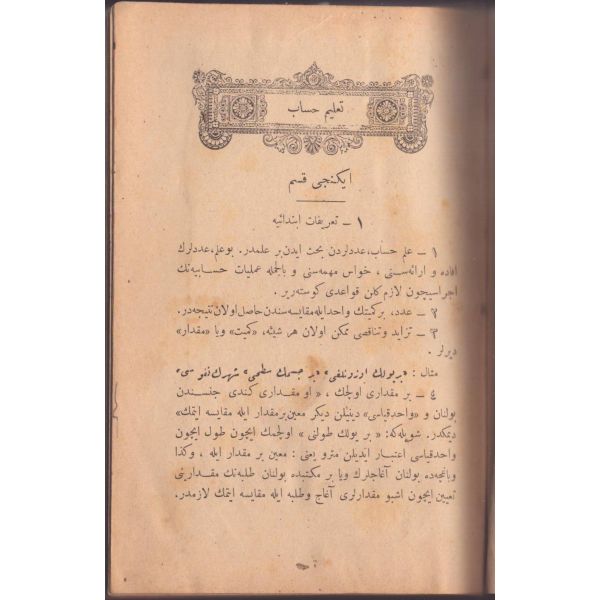 تعليم حساب
ايكنجى قسم
١ ـ تعريفات ابتدائيه
١ ـ علم حساب، عددلردن بحث ايدن بر علمدر. بوعلم، عددلرك
افاده و ارائه سنى ، خواص مهمه سنى و بالجمله عمليات حسابيه نك
اجراسيچون لازم كلن قواعدى كوسترير .
٢ ـ عدد، بركميتك واحد ايله مقايسه سندن حاصل اولان نتيجه در.
٣ ـ تزايد وتناقصى ممكن اولان هر شيئه، «كميت» ويا «مقدار»
ديرلر .
مثال : «بريولك اوزونلغى» «برجسمك سطحى» شهرك نفوسى»
٤ ـ بر مقدارى اولچمك ، « او مقدارى كندى جنسندن
بولنان و «واحد قياسى» دينيلن ديكر معين برمقدار ايله مقايسه ايتمك»
ديمكدر. شويله كه: « بر يولك طولنى » اولچمك ايچون طول ايچون
واحد قياسى اعتبار ايديلن مترو يعنى : معين بر مقدار ايله ، وكذا
وباغچه ده بولنان آغاجلرك ويا بر مكتبده بولنان طلبه نك مقدارينى
تعيين ايچون اشبو مقدارلرى آغاج وطلبه ايله مقايسه ايتمك لازمدر.